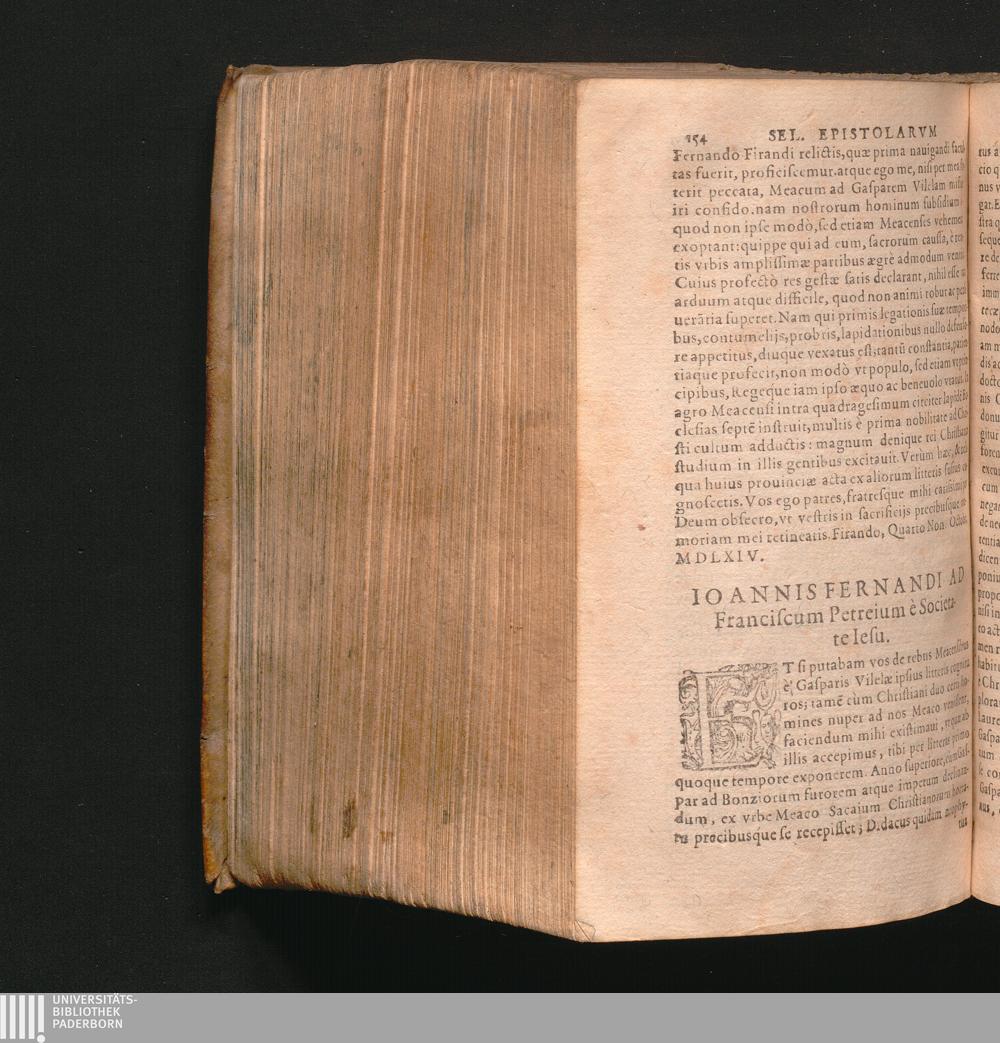 154 SEL. EPISTOLARVM
Fernando Firandi relictis, quæ prima nauigandi facul
tas fuerit, proficiscemur. atque ego me, nisi per mea
terit peccata, Meacum ad Gasparem Vilelam
iri confido. nam nostrorum hominum subsidium
quod non ipse modò, sed etiam Meacenses vehemen
exoptant: quippe qui ad eum, sacrorum caussa, è
tis vrbis amplissimæ partibus ægrè admodum
Cuius profectò res gestæ satis declarant, nihil esse
arduum atque difficile, quod non animi robur ac
uerãtia superet. Nam qui primis legationis suæ tempo
bus, contumelijs, probris, lapidationibus nullo
re appetitus, diuque vexatus est; tantũ constantia,
tiaque profecit, non modò vt populo, sed etiam vt
cipibus, Regeque iam ipso æquo ac beneuolo vtatur.
agro Meacensi intra quadragesimum circiter lapidẽ
clesias septẽ instruit, multis è prima nobilitate ad
sti cultum adductis: magnum denique rei Christianæ
studium in illis gentibus excitauit. Verum hæc,
qua huius prouinciæ acta ex aliorum litteris fusius
gnoscetis. Vos ego patres, fratresque mihi carissimi
Deum obsecro, vt vestris in sacrificijs precibusque
moriam mei retineatis. Firando, Quarto Non. Octobr.
MDLXIV.
IOANNIS FERNANDI AD
Franciscum Petreium è Societa-
te Iesu.
ET si putabam vos de rebus Meacensibus
è Gasparis Vilelæ ipsius litteris
ros; tamẽ cùm Christiani duo
mines nuper ad nos Meaco venissent,
faciendum mihi existimaui, vt quæ ab
illis accepimus, tibi per litteras primo
quoque tempore exponerem. Anno superiore, cùm Gas-
par ad Bonziorum furorem atque impetum declinan-
dum, ex vrbe Meaco Sacaium Christianorum horta-
tu precibusque se recepisset; Didacus quidam neophy-
tus
tus
cio q
nus v
gat. E
stra q
seque
re de
ferre
imm
nodo
am m
dis ac
docto
nis C
donu
gitur
foren
excu
cum
negar
de nec
tentia
dicen
poniu
propo
nisi in
to act
men r
habitu
plora
Laure
Gaspa
tum
Gaspa
UNIVERSITÄTS-
BIBLIOTHEK
PADERBORN